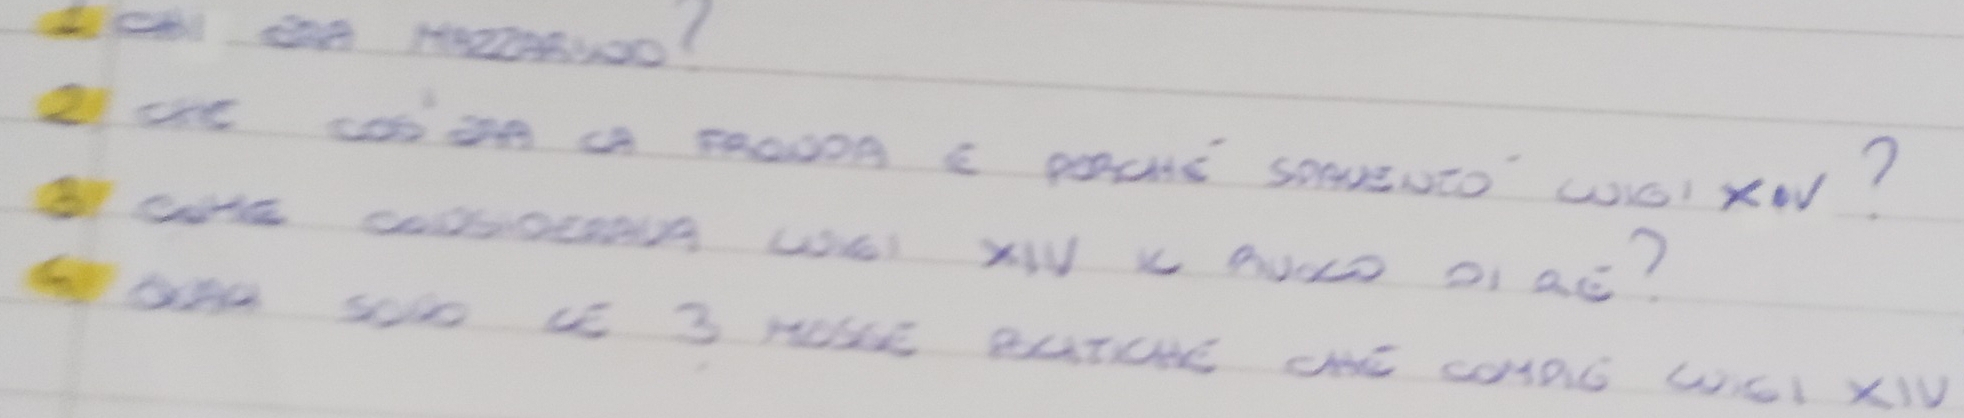 1 CHI ERA MAZZARINO?
2 CHE COS'ERA LA FRONDA E PERCHÉ SPAVENTÒ LUIGI XIV?
3 COME CONSIDERAVA LUIGI XIV IL RUOLO DI RE?
4 QUALI SONO LE 3 MOSSE POLITICHE CHE COMPIE LUIGI XIV